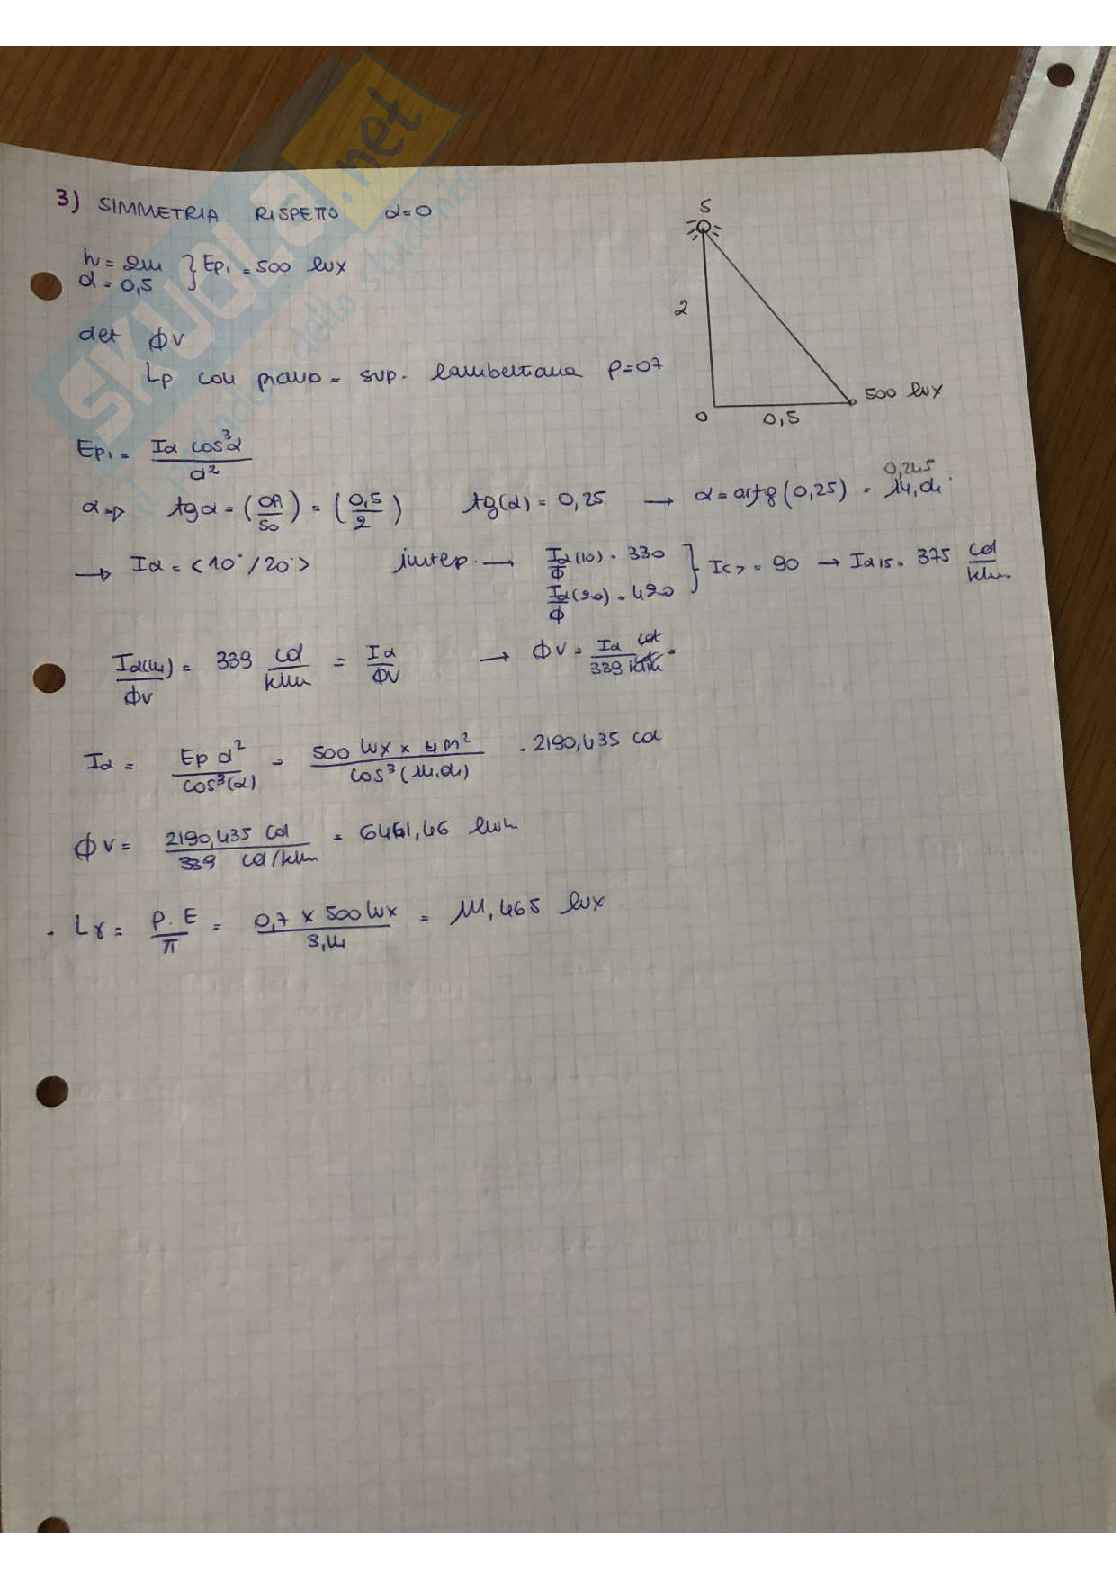 SKUOLA.net
3) SIMMETRIA RISPETTO α=0
S
h = 2m
d = 0,5 } Ep₁ = 500 lux
2
det Φv
Lp con piano = sup. lambertiana ρ=07
500 lux
0
0,5
Ep₁ = Iα cos³α / d²
α => tgα = (OA/SO) = (0,5/2) tg(α) = 0,25 → α = artg(0,25) = 14,04°
0,245
→ Iα = <10°/20°> interp. → Iα(10)/Φ = 330
Iα(20)/Φ = 420 } I<> = 90 → Iα15 = 375 cd/klm
Iα(14)/Φv = 339 cd/klm = Iα/Φv → Φv = Iα cd / 339 =
Iα = Ep d² / cos³(α) = 500 lux x 4m² / cos³(14.04) = 2190,435 cd
Φv = 2190,435 cd / 339 cd/klm = 6461,46 lum
. Lγ = ρ.E / π = 0,7 x 500 lux / 3,14 = 111,465 lux